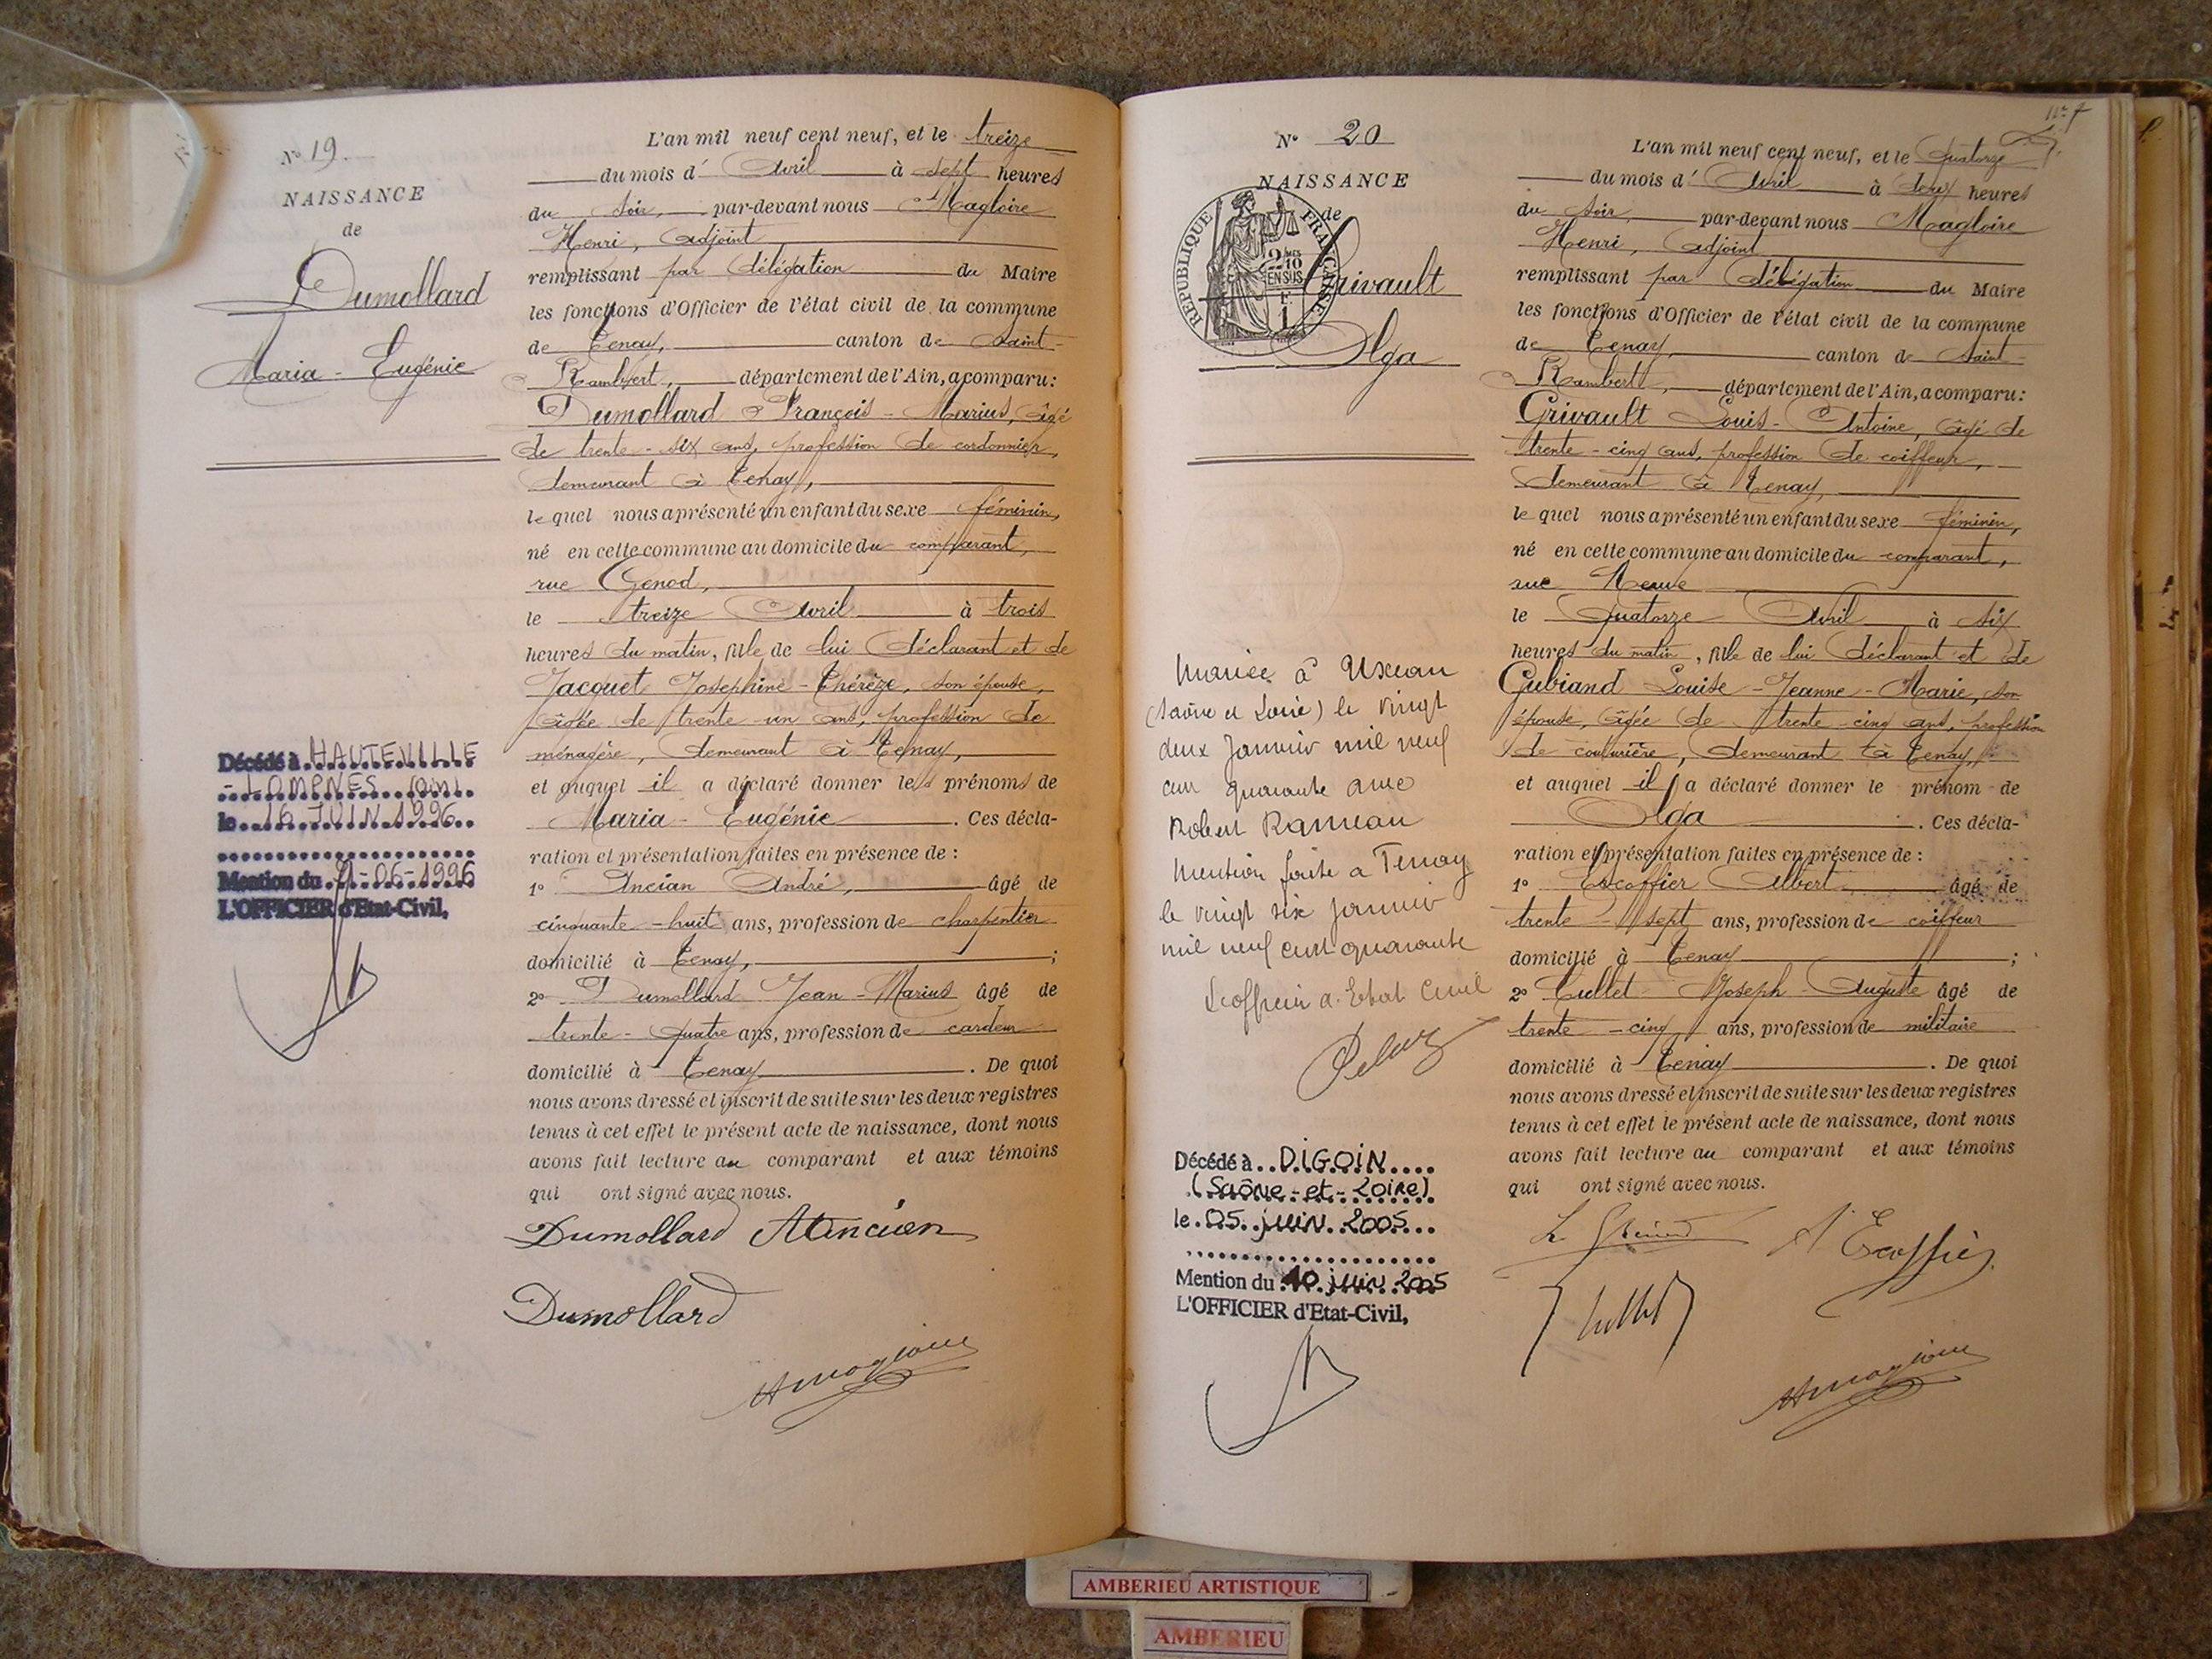 N° 19.
NAISSANCE
de
Dumollard
Maria-Eugénie
Décédé à HAUTEVILLE
-LOMPNES (Ain)
le 16 JUIN 1996
Mention du -06-1996
L'OFFICIER d'Etat-Civil,
L'an mil neuf cent neuf, et le treize
du mois d' Avril à sept heures
du soir, par-devant nous Magloire
Henri, adjoint
remplissant par délégation du Maire
les fonctions d'Officier de l'état civil de la commune
de Tenay, canton de Saint-
Rambert, département de l'Ain, a comparu:
Dumollard François-Marius, âgé
de trente-six ans, profession de cordonnier,
demeurant à Tenay,
le quel nous a présenté un enfant du sexe féminin,
né en cette commune au domicile du comparant,
rue Genod,
le treize Avril à trois
heures du matin, fille de lui déclarant et de
Jacquet Joséphine-Thérèze, son épouse,
âgée de trente-un ans, profession de
ménagère, demeurant à Tenay,
et auquel il a déclaré donner les prénoms de
Maria-Eugénie. Ces décla-
ration et présentation faites en présence de :
1° Ancian André, âgé de
cinquante-huit ans, profession de charpentier
domicilié à Tenay, ;
2° Dumollard Jean-Marius âgé de
trente-quatre ans, profession de cardeur
domicilié à Tenay. De quoi
nous avons dressé et inscrit de suite sur les deux registres
tenus à cet effet le présent acte de naissance, dont nous
avons fait lecture au comparant et aux témoins
qui ont signé avec nous.
Dumollard A Ancian
Dumollard
H Magloire
N° 20
NAISSANCE
de
REPUBLIQUE FRANÇAISE
2/10
EN SUS
Grivault
Olga
Mariée à Uxeau
(Saône et Loire) le vingt
deux Janvier mil neuf
cent quarante avec
Robert Rameau
Mention faite a Tenay
le vingt six janvier
mil neuf cent quarante
L'officier d'Etat Civil
Décédé à DIGOIN
(Saône-et-Loire)
le 05 juin 2005
Mention du 10 juin 2005
L'OFFICIER d'Etat-Civil,
L'an mil neuf cent neuf, et le quatorze
du mois d' Avril à deux heures
du soir, par-devant nous Magloire
Henri, adjoint
remplissant par délégation du Maire
les fonctions d'Officier de l'état civil de la commune
de Tenay, canton de Saint-
Rambert, département de l'Ain, a comparu:
Grivault Louis-Antoine, âgé de
trente-cinq ans, profession de coiffeur,
demeurant à Tenay,
le quel nous a présenté un enfant du sexe féminin,
né en cette commune au domicile du comparant,
rue Neuve
le quatorze Avril à six
heures du matin, fille de lui déclarant et de
Gubiand Louise-Jeanne-Marie, son
épouse, âgée de trente-cinq ans, profession
de couturière, demeurant à Tenay,
et auquel il a déclaré donner le prénom de
Olga. Ces décla-
ration et présentation faites en présence de :
1° Escoffier Albert, âgé de
trente-sept ans, profession de coiffeur
domicilié à Tenay ;
2° Cullet Joseph-Auguste âgé de
trente-cinq ans, profession de militaire
domicilié à Tenay. De quoi
nous avons dressé et inscrit de suite sur les deux registres
tenus à cet effet le présent acte de naissance, dont nous
avons fait lecture au comparant et aux témoins
qui ont signé avec nous.
A Escoffier
Cullet
H Magloire
AMBERIEU ARTISTIQUE
AMBERIEU